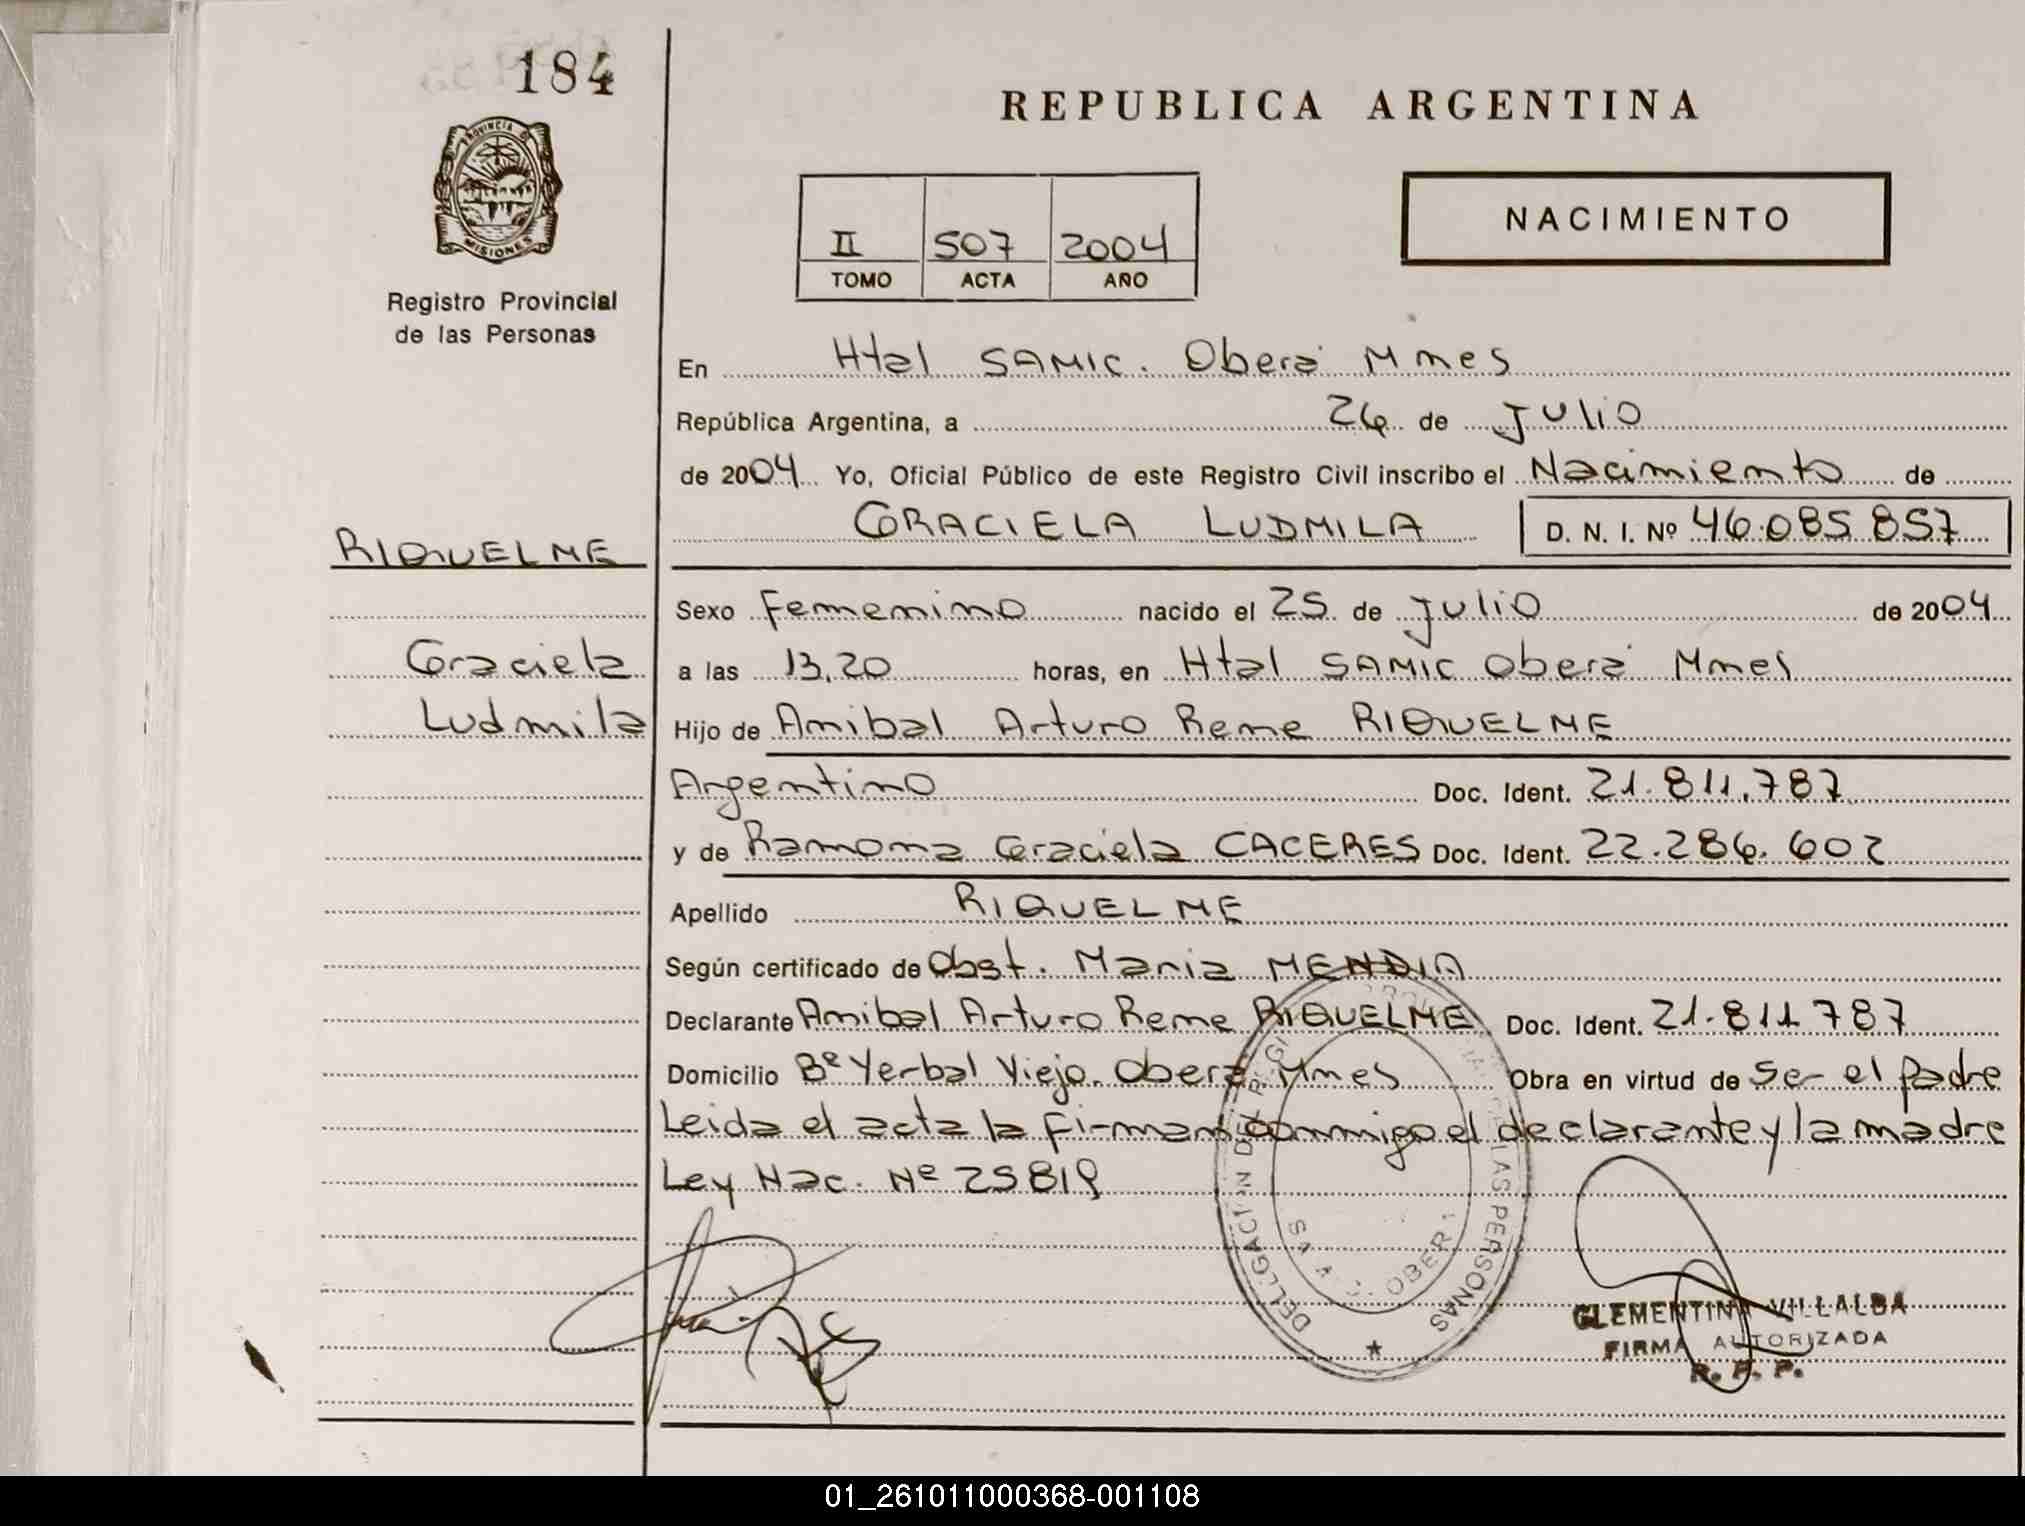 184
PROVINCIA D
MISIONES
Registro Provincial
de las Personas
REPUBLICA ARGENTINA
NACIMIENTO
II 507 2004
TOMO ACTA AÑO
En Htal SAMIC. Oberá Mnes
República Argentina, a 26 de Julio
de 2004 Yo, Oficial Público de este Registro Civil inscribo el Nacimiento de
GRACIELA LUDMILA D. N. I. Nº 46.085.857
RIQUELME
Graciela
Ludmila
Sexo Femenino nacido el 25 de Julio de 2004
a las 13,20 horas, en Htal SAMIC Oberá Mnes
Hijo de Anibal Arturo Rene RIQUELME
Argentino Doc. Ident. 21.811.787
y de Ramona Graciela CACERES Doc. Ident. 22.286.602
Apellido RIQUELME
Según certificado de Obst. Maria MENDIA
Declarante Anibal Arturo Rene RIQUELME Doc. Ident. 21.811.787
Domicilio Bº Yerbal Viejo. Oberá Mnes Obra en virtud de Ser el padre
Leida el acta la firman conmigo el declarante y la madre
Ley Nac. Nº 25819
DELEGACION DEL REGI LAS PERSONAS
CLEMENTINA VILLALBA
FIRMA AUTORIZADA
R. P. P.
01_261011000368-001108